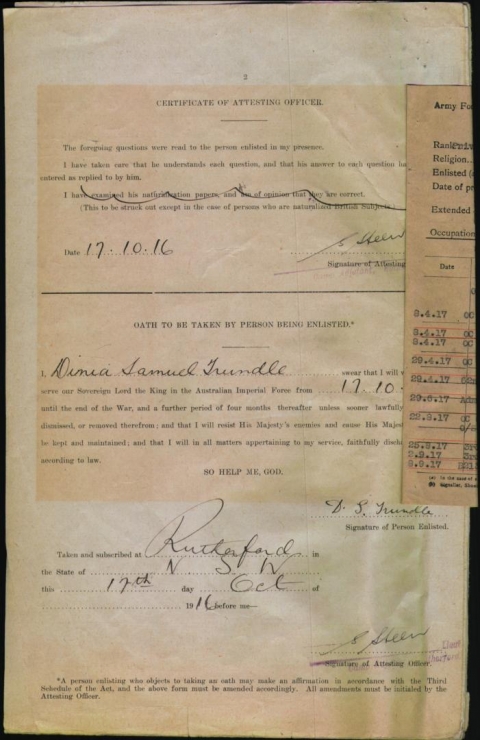 2
CERTIFICATE OF ATTESTING OFFICER.
The foregoing questions were read to the person enlisted in my presence.
I have taken care that he understands each question, and that his answer to each question ha
entered as replied to by him.
I have examined his naturalisation papers, and am of opinion that they are correct.
(This to be struck out except in the case of persons who are naturalised British Subjects.)
Date 17.10.16
Signature of Attesting
OATH TO BE TAKEN BY PERSON BEING ENLISTED.*
I, Samuel Trundle swear that I will
serve our Sovereign Lord the King in the Australian Imperial Force from 17.10.
until the end of the War, and a further period of four months thereafter unless sooner lawfully
dismissed, or removed therefrom; and that I will resist His Majesty's enemies and cause His Majes
be kept and maintained; and that I will in all matters appertaining to my service, faithfully disch
according to law.
SO HELP ME, GOD.
D. S. Trundle
Signature of Person Enlisted.
Taken and subscribed at Rutherford in
the State of N S W
this 17th day Oct of
1916 before me—
Signature of Attesting Officer.
*A person enlisting who objects to taking an oath may make an affirmation in accordance with the Third
Schedule of the Act, and the above form must be amended accordingly. All amendments must be initialed by the
Attesting Officer.
Army Fo
Rank
Religion
Enlisted (
Date of pr
Extended
Occupation
Date
8.4.17 OC
8.4.17 OC
8.4.17 OC
29.4.17 OC
29.4.17
29.8.17
22.8.17 OC
25.8.17
2.9.17
8.9.17